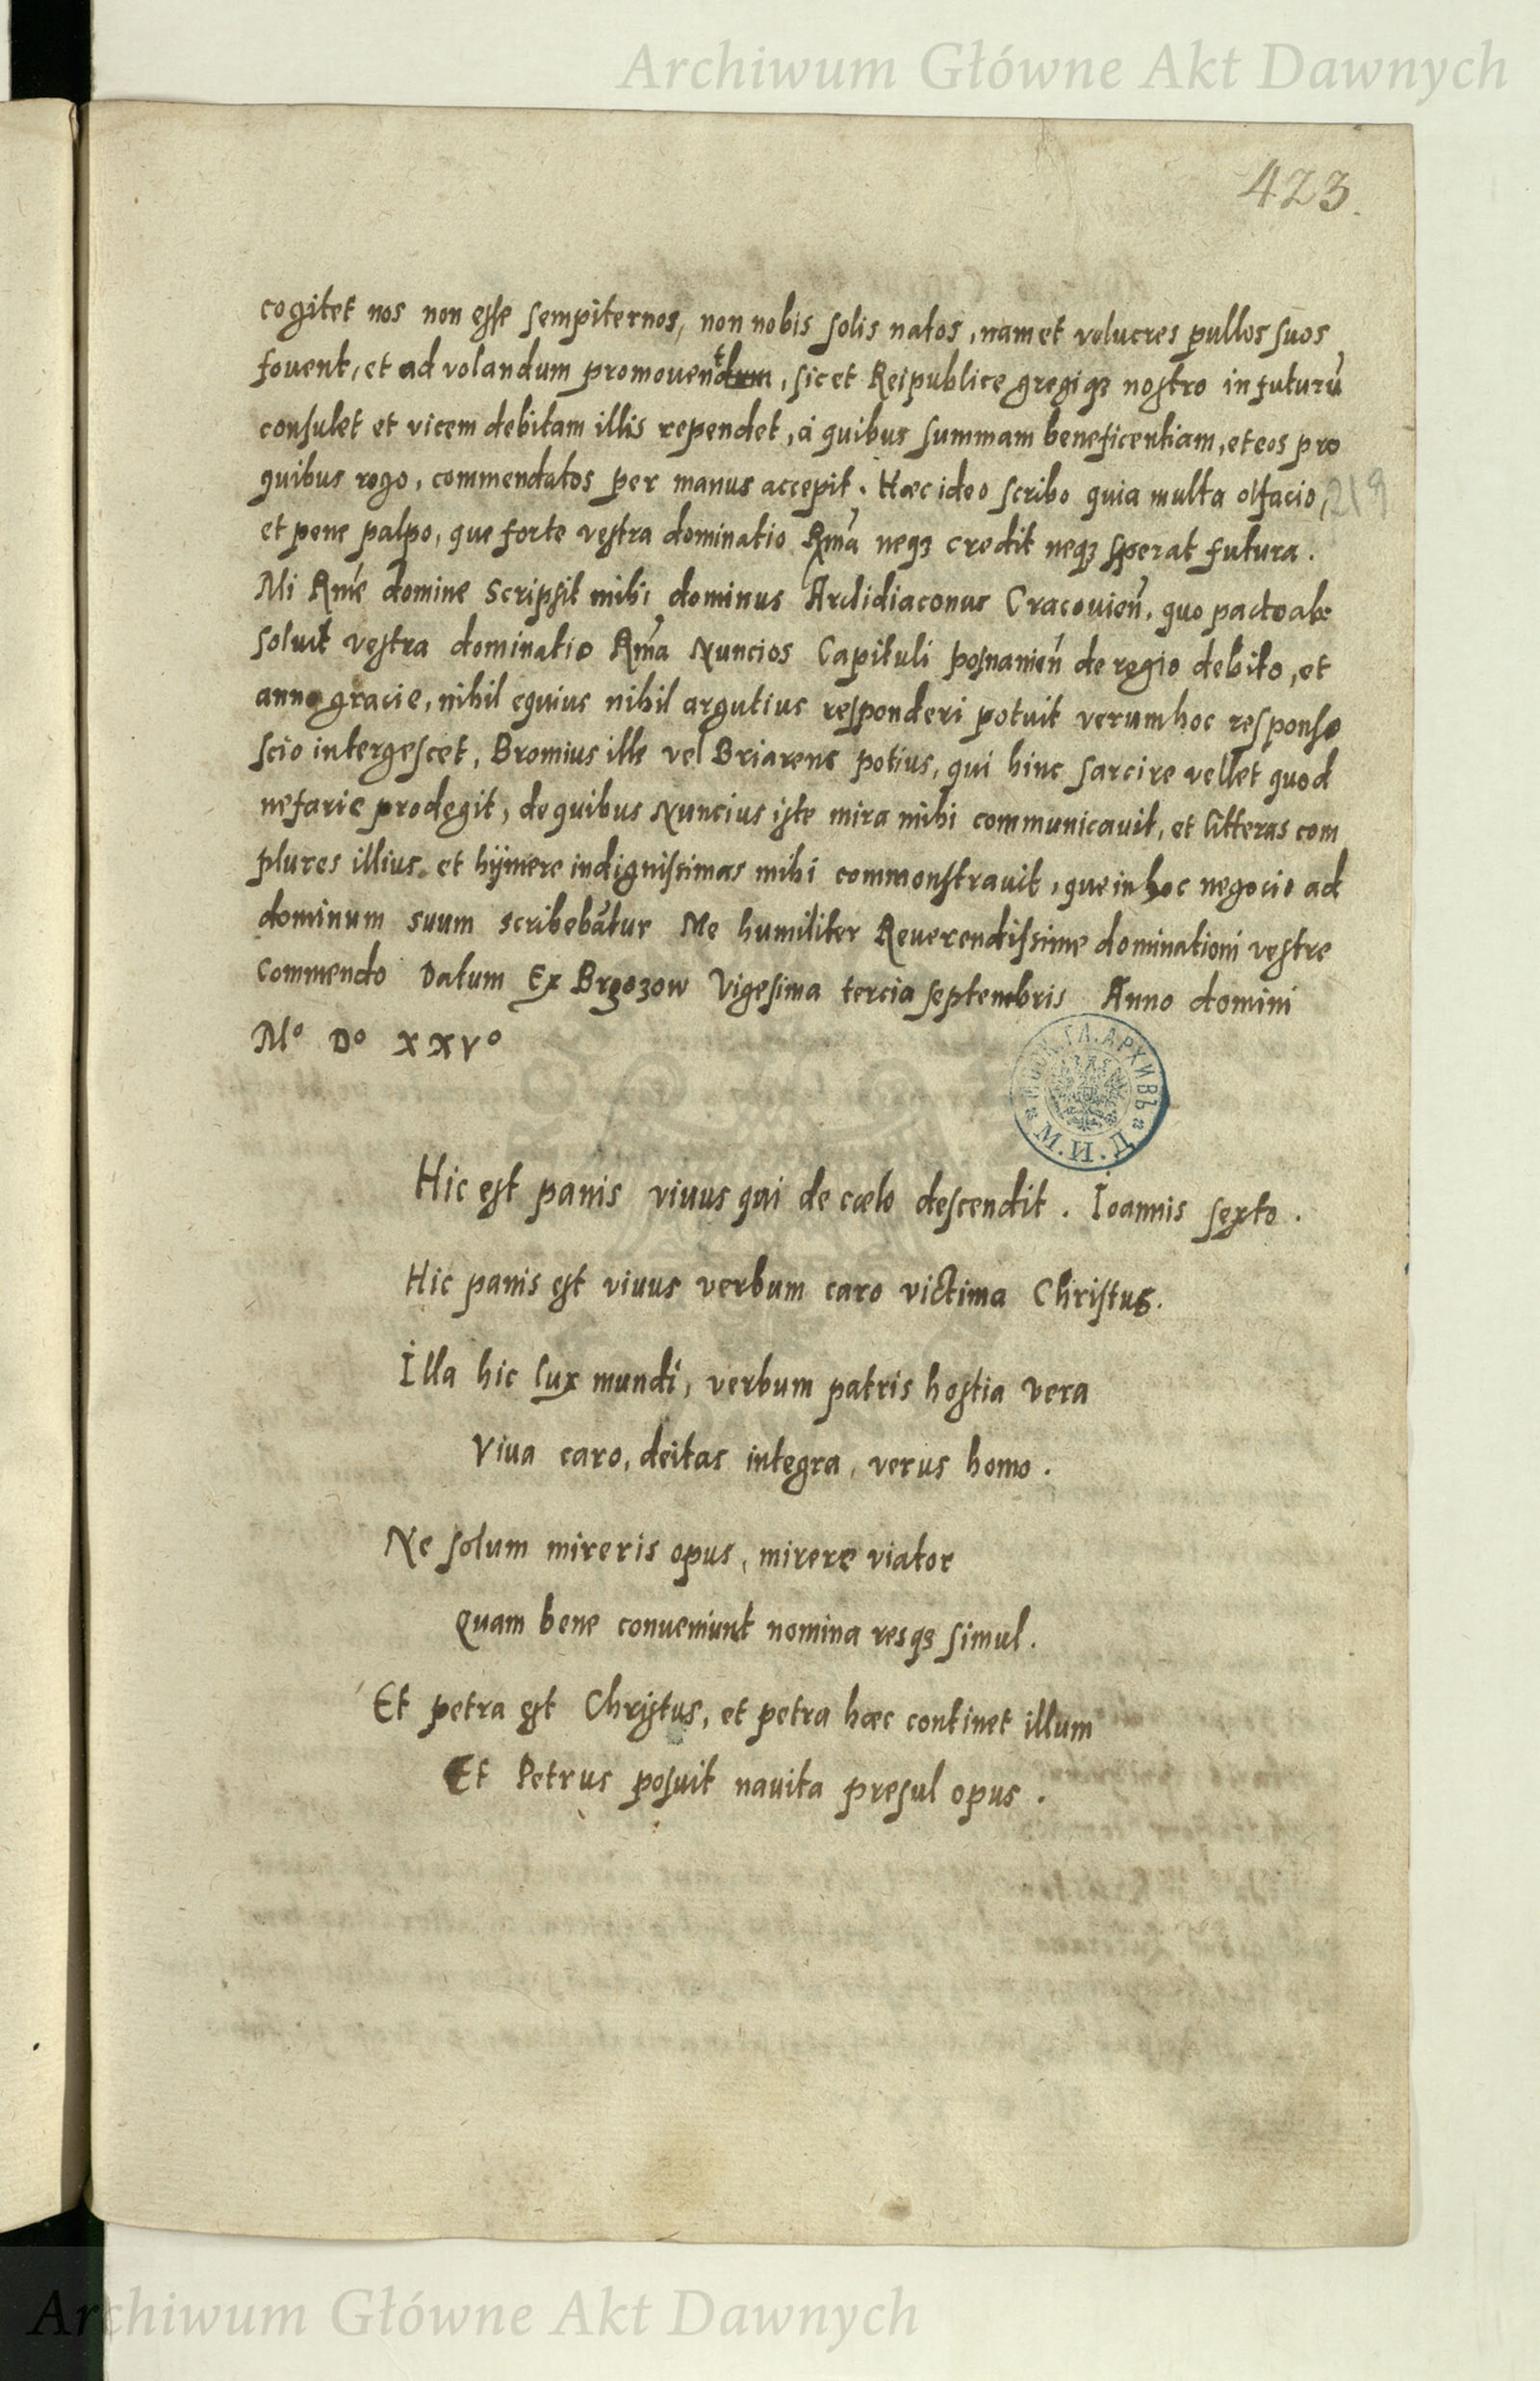 Archiwum Główne Akt Dawnych
423.
cogitet nos non esse sempiternos, non nobis solis natos, nam et volucres pullos suos
fouent, et ad volandum promouent, sic et Reipublice gregiqꝫ nostro in futurū
consulet et vicem debitam illis rependet, à quibus summam beneficentiam, et eos pro
quibus rogo, commendatos per manus accepit. Hæc ideo scribo quia multa olfacio,
219
et pene palpo, que forte vestra dominatio Rm̃a neqꝫ credit neqꝫ sperat futura.
Mi Rmẽ domine Scripsit mihi dominus Archidiaconus Cracouien̄. quo pacto abs
soluit vestra dominatio Rm̃a Nuncios Capituli posnanien̄ de regio debito, et
anno gracie, nihil equius nihil argutius responderi potuit verum hoc responso
scio intergescet, Bromius ille vel Briareus potius, qui hinc sarcire vellet quod
nefarie prodegit, de quibus Nuncius iste mira mihi communicauit, et litteras com
plures illius et hijmere indignissimas mihi commonstrauit, que in hoc negocio ad
dominum suum scribebātur Me humiliter Reuerendissime dominationi vestre
commendo Datum Ex Brzozow Vigesima tercia septembris Anno domini
Mº Dº XXVº
МОСК. ГЛ. АРХИВЪ
М.И.Д.
Hic est panis viuus qui de cœlo descendit. Ioannis sexto.
Hic panis est viuus verbum caro victima Christus.
Illa hic lux mundi, verbum patris hostia vera
Viua caro, deitas integra, verus homo.
Ne solum mireris opus, mirere viator
Quam bene conueniunt nomina resqꝫ simul.
Et petra est Christus, et petra hæc continet illum
Et Petrus posuit nauita presul opus.
Archiwum Główne Akt Dawnych